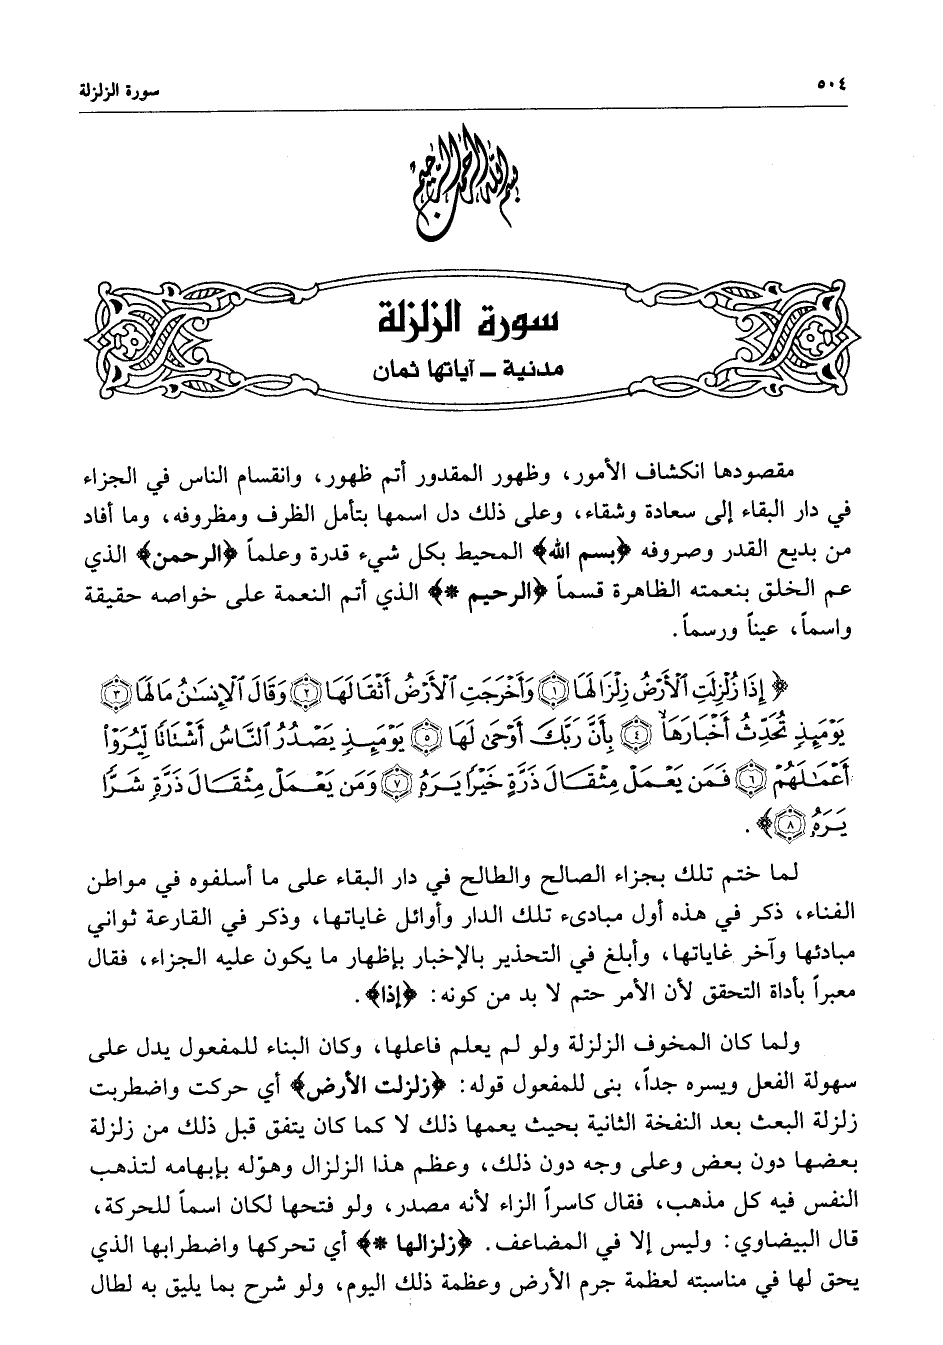 ٥٠٤
سورة الزلزلة
بسم الله الرحمن الرحيم
سورة الزلزلة
مدنية ـ آياتها ثمان
مقصودها انكشاف الأمور، وظهور المقدور أتم ظهور، وانقسام الناس في الجزاء
في دار البقاء إلى سعادة وشقاء، وعلى ذلك دل اسمها بتأمل الظرف ومظروفه، وما أفاد
من بديع القدر وصروفه ﴿بسم الله﴾ المحيط بكل شيء قدرة وعلماً ﴿الرحمن﴾ الذي
عم الخلق بنعمته الظاهرة قسماً ﴿الرحيم *﴾ الذي أتم النعمة على خواصه حقيقة
واسماً، عيناً ورسماً.
﴿إِذَا زُلْزِلَتِ ٱلْأَرْضُ زِلْزَالَهَا ١ وَأَخْرَجَتِ ٱلْأَرْضُ أَثْقَالَهَا ٢ وَقَالَ ٱلْإِنسَٰنُ مَا لَهَا ٣
يَوْمَئِذٍ تُحَدِّثُ أَخْبَارَهَا ٤ بِأَنَّ رَبَّكَ أَوْحَىٰ لَهَا ٥ يَوْمَئِذٍ يَصْدُرُ ٱلنَّاسُ أَشْتَاتًا لِّيُرَوْا۟
أَعْمَٰلَهُمْ ٦ فَمَن يَعْمَلْ مِثْقَالَ ذَرَّةٍ خَيْرًا يَرَهُۥ ٧ وَمَن يَعْمَلْ مِثْقَالَ ذَرَّةٍ شَرًّا
يَرَهُۥ ٨﴾.
لما ختم تلك بجزاء الصالح والطالح في دار البقاء على ما أسلفوه في مواطن
الفناء، ذكر في هذه أول مبادىء تلك الدار وأوائل غاياتها، وذكر في القارعة ثواني
مبادئها وآخر غاياتها، وأبلغ في التحذير بالإخبار بإظهار ما يكون عليه الجزاء، فقال
معبراً بأداة التحقق لأن الأمر حتم لا بد من كونه: ﴿إذا﴾.
ولما كان المخوف الزلزلة ولو لم يعلم فاعلها، وكان البناء للمفعول يدل على
سهولة الفعل ويسره جداً، بنى للمفعول قوله: ﴿زلزلت الأرض﴾ أي حركت واضطربت
زلزلة البعث بعد النفخة الثانية بحيث يعمها ذلك لا كما كان يتفق قبل ذلك من زلزلة
بعضها دون بعض وعلى وجه دون ذلك، وعظم هذا الزلزال وهوّله بإبهامه لتذهب
النفس فيه كل مذهب، فقال كاسراً الزاء لأنه مصدر، ولو فتحها لكان اسماً للحركة،
قال البيضاوي: وليس إلا في المضاعف. ﴿زلزالها *﴾ أي تحركها واضطرابها الذي
يحق لها في مناسبته لعظمة جرم الأرض وعظمة ذلك اليوم، ولو شرح بما يليق به لطال